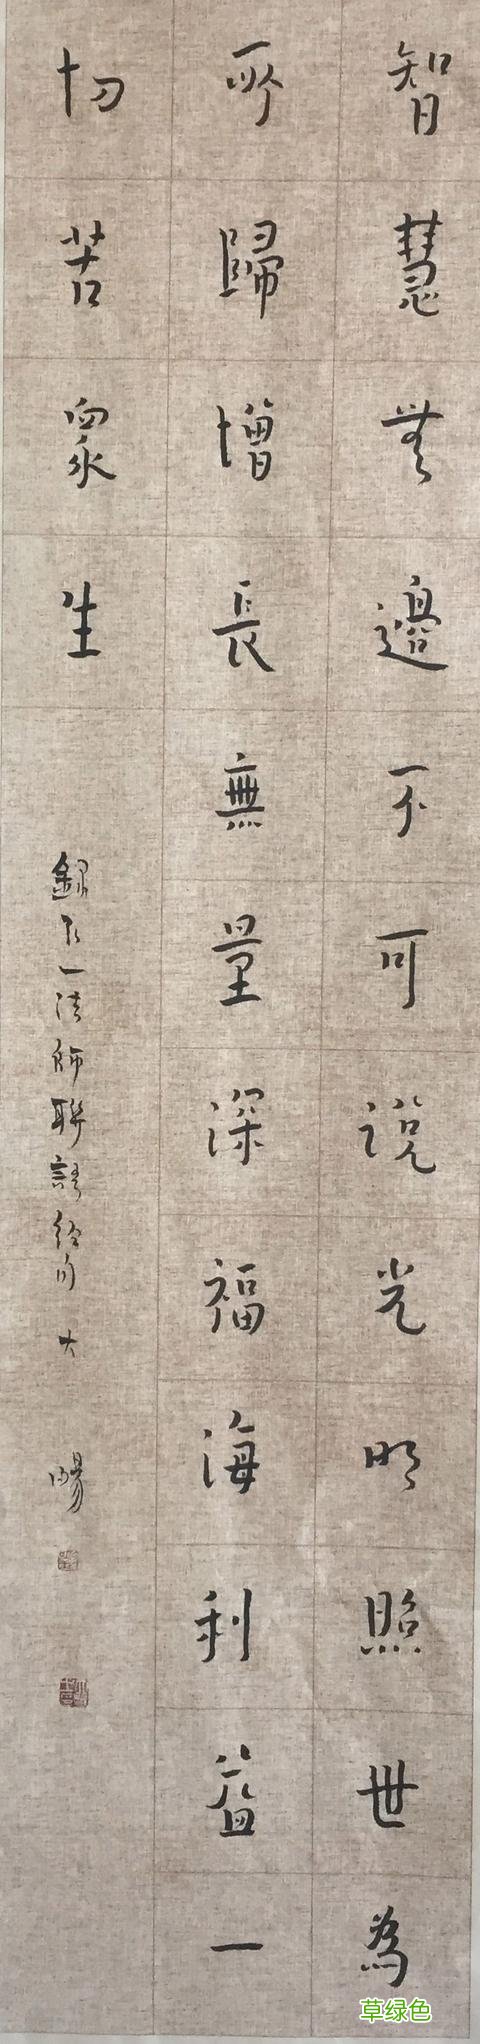 智慧無邊不可說光明照世為
所歸增長無量深福海利益一
切苦眾生
錄弘一法師聯語經句 大暢
草绿色